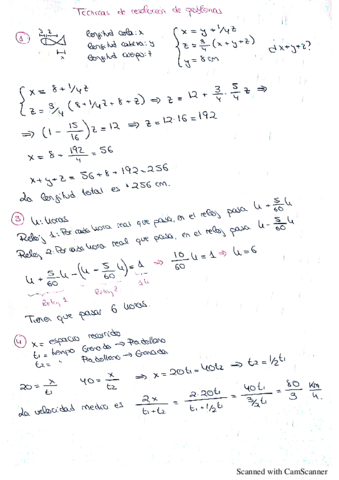 Técnicas de resolución de problemas
1 longitud cola: x
longitud cabeza: y
longitud cuerpo: z
x = y + 1/4 z
z = 3/4 (x+y+z)
y = 8 cm
¿x+y+z?
x = 8 + 1/4 z
z = 3/4 (8 + 1/4 z + 8 + z) ⇒ z = 12 + 3/4 · 5/4 z ⇒
⇒ (1 - 15/16) z = 12 ⇒ z = 12·16 = 192
x = 8 + 192/4 = 56
x+y+z = 56+8+192 = 256
La longitud total es 256 cm.
3 h: horas
Reloj 1: Por cada hora real que pasa, en el reloj pasa h + 5/60 h
Reloj 2: Por cada hora real que pasa, en el reloj pasa h - 5/60 h
h + 5/60 h - (h - 5/60 h) = 1 ⇒ 10/60 h = 1 ⇒ h = 6
Reloj 1 Reloj 2 1h
Tienen que pasar 6 horas.
4 x = espacio recorrido
t1 = tiempo Granada → Padollano
t2 = " Padollano → Granada
20 = x/t1 40 = x/t2 ⇒ x = 20t1 = 40t2 ⇒ t2 = 1/2 t1
La velocidad media es 2x/(t1+t2) = 2·20t1/(t1+1/2 t1) = 40t1/(3/2 t1) = 80/3 km/h.
Scanned with CamScanner